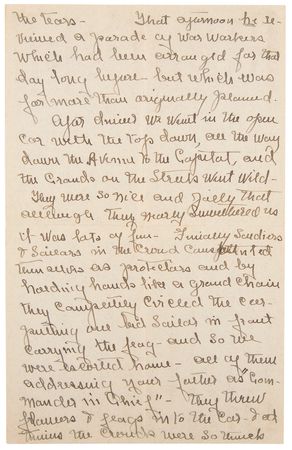 the tears — That afternoon he re-
viewed a parade of War Workers
which had been arranged for that
day long before — but which was
far more than originally planned.
After dinner we went in the open
car with the top down, all the way
down the Avenue to the Capitol, and
the Crowds on the Streets went wild —
They were so nice and jolly that
although they nearly smothered us
it was lots of fun — Finally Soldiers
& Sailors in the Crowd
themselves as protectors and by
hands like a grand chain
they completely circled the car —
putting one Sailor in front
carrying the flag — and so we
were escorted home — all of them
addressing your father as "Com-
mander in Chief" — They threw
flowers & flags in to the Car — & at
times the Crowds were so thick